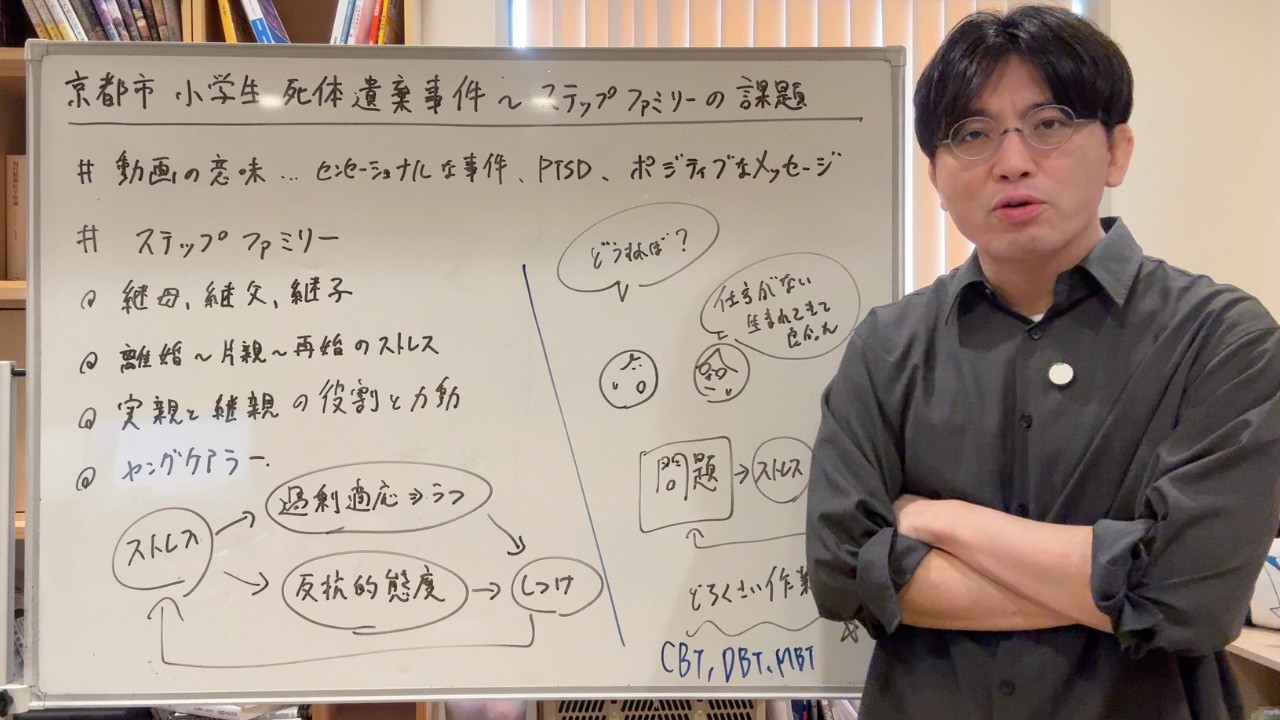 京都市 小学生 死体遺棄事件 ~ ステップファミリーの課題
# 動画の意味… センセーショナルな事件、PTSD、ポジティブなメッセージ
# ステップファミリー
@ 継母、継父、継子
@ 離婚~片親~再婚のストレス
@ 実親と継親の役割と力動
@ ヤングケアラー.
ストレス
過剰適応⇒うつ
反抗的態度
しつけ
どうすれば?
仕方がない
生まれてきて
問題
ストレス
どろくさい作業
CBT, DBT, MBT